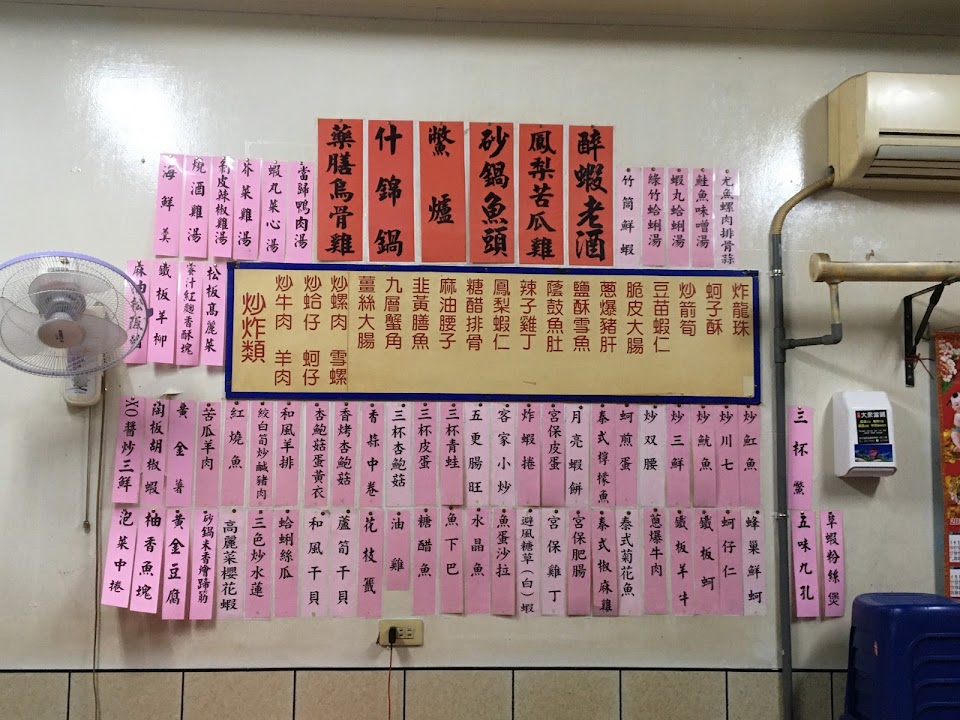 醉蝦老酒
鳳梨苦瓜雞
砂鍋魚頭
鱉爐
什錦鍋
藥膳烏骨雞
尤魚螺肉排骨蒜
鮭魚味噌湯
蝦丸蛤蜊湯
綠竹蛤蜊湯
竹筒鮮蝦
當歸鴨肉湯
蝦丸菜心湯
芥菜雞湯
剝皮辣椒雞湯
燒酒雞湯
海鮮羹
炸龍珠
蚵子酥
炒箭筍
豆苗蝦仁
脆皮大腸
蔥爆豬肝
鹽酥雪魚
蔭鼓魚肚
辣子雞丁
鳳梨蝦仁
糖醋排骨
麻油腰子
韭黃膳魚
九層蟹角
薑絲大腸
炒螺肉 雪螺
炒蛤仔 蚵仔
炒牛肉 羊肉
炒炸類
松板高麗菜
醬汁紅麴香酥塊
鐵板羊柳
炒魟魚
炒川七
炒魷魚
炒三鮮
炒双腰
蚵煎蛋
泰式檸檬魚
月亮蝦餅
宮保皮蛋
炸蝦捲
客家小炒
五更腸旺
三杯青蛙
三杯皮蛋
三杯杏鮑菇
香蒜中卷
香烤杏鮑菇
杏鮑菇蛋黃衣
和風羊排
絞白筍炒鹹豬肉
紅燒魚
苦瓜羊肉
陶板胡椒蝦
XO醬炒三鮮
三杯鱉
蜂巢鮮蚵
蚵仔仁
鐵板蚵
鐵板羊牛
蔥爆牛肉
泰式菊花魚
泰式椒麻雞
宮保肥腸
宮保雞丁
避風糖草(白)蝦
魚蛋沙拉
水晶魚
魚下巴
糖醋魚
油雞
花枝籤
蘆筍干貝
和風干貝
蛤蜊絲瓜
三色炒水蓮
高麗菜櫻花蝦
砂鍋米香燴蹄筋
黃金豆腐
柚香魚塊
泡菜中捲
五味九孔
草蝦粉絲煲